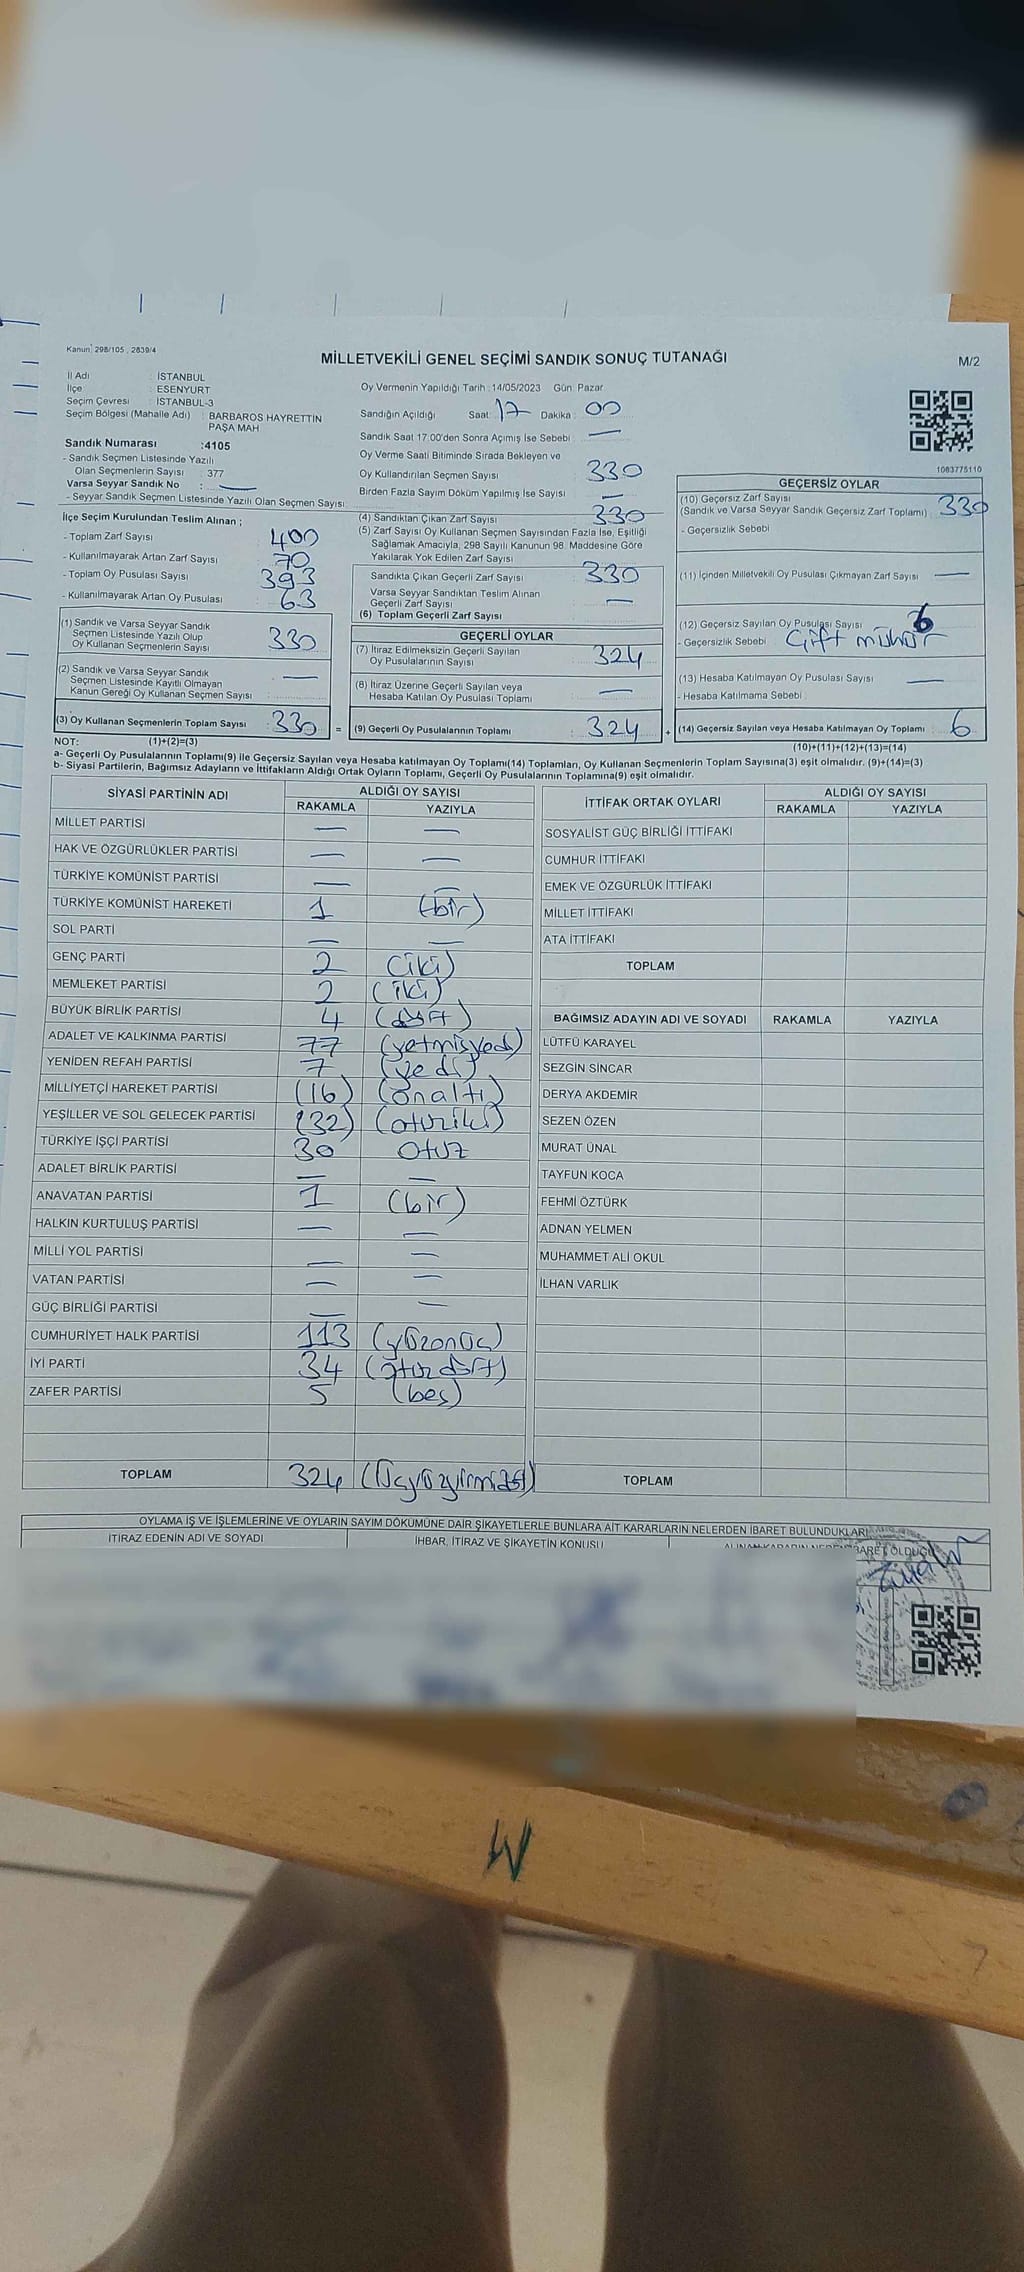 Kanun 298/105 , 2839/4
MİLLETVEKİLİ GENEL SEÇİMİ SANDIK SONUÇ TUTANAĞI
M/2
İl Adı : İSTANBUL
İlçe : ESENYURT
Seçim Çevresi : İSTANBUL-3
Seçim Bölgesi (Mahalle Adı) : BARBAROS HAYRETTİN
PAŞA MAH
Sandık Numarası :4105
- Sandık Seçmen Listesinde Yazılı
Olan Seçmenlerin Sayısı : 377
Varsa Seyyar Sandık No : —
- Seyyar Sandık Seçmen Listesinde Yazılı Olan Seçmen Sayısı
Oy Vermenin Yapıldığı Tarih :14/05/2023 Gün: Pazar
Sandığın Açıldığı Saat: 17 Dakika : 00
Sandık Saat 17:00'den Sonra Açımış İse Sebebi : —
Oy Verme Saati Bitiminde Sırada Bekleyen ve
Oy Kullandırılan Seçmen Sayısı 330
Birden Fazla Sayım Döküm Yapılmış İse Sayısı —
1083775110
İlçe Seçim Kurulundan Teslim Alınan ;
- Toplam Zarf Sayısı : 400
- Kullanılmayarak Artan Zarf Sayısı : 70
- Toplam Oy Pusulası Sayısı : 393
- Kullanılmayarak Artan Oy Pusulası : 63
(1) Sandık ve Varsa Seyyar Sandık
Seçmen Listesinde Yazılı Olup
Oy Kullanan Seçmenlerin Sayısı : 330
(2) Sandık ve Varsa Seyyar Sandık
Seçmen Listesinde Kayıtlı Olmayan
Kanun Gereği Oy Kullanan Seçmen Sayısı : —
(3) Oy Kullanan Seçmenlerin Toplam Sayısı : 330 =
(4) Sandıktan Çıkan Zarf Sayısı 330
(5) Zarf Sayısı Oy Kullanan Seçmen Sayısından Fazla İse, Eşitliği
Sağlamak Amacıyla, 298 Sayılı Kanunun 98. Maddesine Göre
Yakılarak Yok Edilen Zarf Sayısı
Sandıkta Çıkan Geçerli Zarf Sayısı : 330
Varsa Seyyar Sandıktan Teslim Alınan
Geçerli Zarf Sayısı : —
(6) Toplam Geçerli Zarf Sayısı
GEÇERLİ OYLAR
(7) İtiraz Edilmeksizin Geçerli Sayılan
Oy Pusulalarının Sayısı : 324
(8) İtiraz Üzerine Geçerli Sayılan veya
Hesaba Katılan Oy Pusulası Toplamı : —
(9) Geçerli Oy Pusulalarının Toplamı : 324 +
GEÇERSİZ OYLAR
(10) Geçersiz Zarf Sayısı
(Sandık ve Varsa Seyyar Sandık Geçersiz Zarf Toplamı) : 330
- Geçersizlik Sebebi
(11) İçinden Milletvekili Oy Pusulası Çıkmayan Zarf Sayısı : —
(12) Geçersiz Sayılan Oy Pusulası Sayısı : 6
- Geçersizlik Sebebi : Çift mühür
(13) Hesaba Katılmayan Oy Pusulası Sayısı : —
- Hesaba Katılmama Sebebi :
(14) Geçersiz Sayılan veya Hesaba Katılmayan Oy Toplamı : 6
NOT: (1)+(2)=(3)
(10)+(11)+(12)+(13)=(14)
a- Geçerli Oy Pusulalarının Toplamı(9) ile Geçersiz Sayılan veya Hesaba katılmayan Oy Toplamı(14) Toplamları, Oy Kullanan Seçmenlerin Toplam Sayısına(3) eşit olmalıdır. (9)+(14)=(3)
b- Siyasi Partilerin, Bağımsız Adayların ve İttifakların Aldığı Ortak Oyların Toplamı, Geçerli Oy Pusulalarının Toplamına(9) eşit olmalıdır.
SİYASİ PARTİNİN ADI ALDIĞI OY SAYISI
RAKAMLA YAZIYLA
MİLLET PARTİSİ — —
HAK VE ÖZGÜRLÜKLER PARTİSİ — —
TÜRKİYE KOMÜNİST PARTİSİ — —
TÜRKİYE KOMÜNİST HAREKETİ 1 (bir)
SOL PARTİ — —
GENÇ PARTİ 2 (iki)
MEMLEKET PARTİSİ 2 (iki)
BÜYÜK BİRLİK PARTİSİ 4 (dört)
ADALET VE KALKINMA PARTİSİ 77 (yetmişyedi)
YENİDEN REFAH PARTİSİ 7 (yedi)
MİLLİYETÇİ HAREKET PARTİSİ (16) (onaltı)
YEŞİLLER VE SOL GELECEK PARTİSİ (32) (otuziki)
TÜRKİYE İŞÇİ PARTİSİ 30 otuz
ADALET BİRLİK PARTİSİ — —
ANAVATAN PARTİSİ 1 (bir)
HALKIN KURTULUŞ PARTİSİ — —
MİLLİ YOL PARTİSİ — —
VATAN PARTİSİ — —
GÜÇ BİRLİĞİ PARTİSİ — —
CUMHURİYET HALK PARTİSİ 113 (yüzonüç)
İYİ PARTİ 34 (otuzdört)
ZAFER PARTİSİ 5 (beş)
TOPLAM 324 (Üçyüzyirmidört)
İTTİFAK ORTAK OYLARI ALDIĞI OY SAYISI
RAKAMLA YAZIYLA
SOSYALİST GÜÇ BİRLİĞİ İTTİFAKI
CUMHUR İTTİFAKI
EMEK VE ÖZGÜRLÜK İTTİFAKI
MİLLET İTTİFAKI
ATA İTTİFAKI
TOPLAM
BAĞIMSIZ ADAYIN ADI VE SOYADI RAKAMLA YAZIYLA
LÜTFÜ KARAYEL
SEZGİN SİNCAR
DERYA AKDEMİR
SEZEN ÖZEN
MURAT ÜNAL
TAYFUN KOCA
FEHMİ ÖZTÜRK
ADNAN YELMEN
MUHAMMET ALİ OKUL
İLHAN VARLIK
TOPLAM
OYLAMA İŞ VE İŞLEMLERİNE VE OYLARIN SAYIM DÖKÜMÜNE DAİR ŞİKAYETLERLE BUNLARA AİT KARARLARIN NELERDEN İBARET BULUNDUKLARI
İTİRAZ EDENİN ADI VE SOYADI İHBAR, İTİRAZ VE ŞİKAYETİN KONUSU